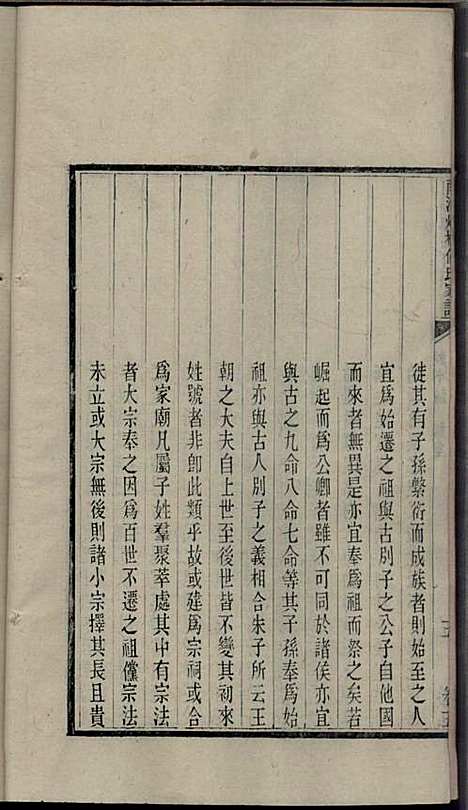 徙其有子孫繁衍而成族者則始至之人
宜爲始遷之祖與古別子之公子自他國
而來者無異是亦宜奉爲祖而祭之矣若
崛起而爲公卿者雖不可同於諸侯亦宜
與古之九命八命七命等其子孫奉爲始
祖亦與古人別子之義相合朱子所云王
朝之大夫自上世至後世皆不變其初來
姓號者非卽此類乎故或建爲宗祠或合
爲家廟凡屬子姓羣聚萃處其中有宗法
者大宗奉之因爲百世不遷之祖儻宗法
未立或大宗無後則諸小宗擇其長且貴